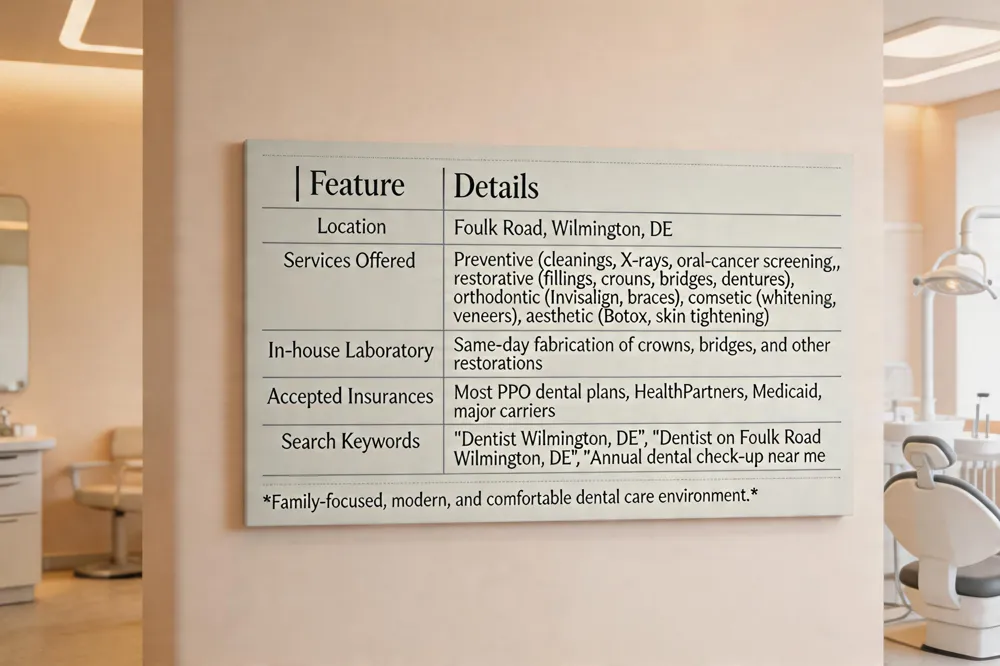 | Feature
Details
Location
Foulk Road, Wilmington, DE
Services Offered
Preventive (cleanings, X-rays, oral-cancer screening,,
restorative (fillings, crouns, bridges, dentures),
orthodontic (Invisalign, braces), comsetic (whitening,
veneers), aesthetic (Botox, skin tightening)
In-house Laboratory
Same-day fabrication of crowns, bridges, and other
restorations
Accepted Insurances
Most PPO dental plans, HealthPartners, Medicaid,
major carriers
Search Keywords
"Dentist Wilmington, DE", "Dentist on Foulk Road
Wilmington, DE", "Annual dental check-up near me
*Family-focused, modern, and comfortable dental care environment.*